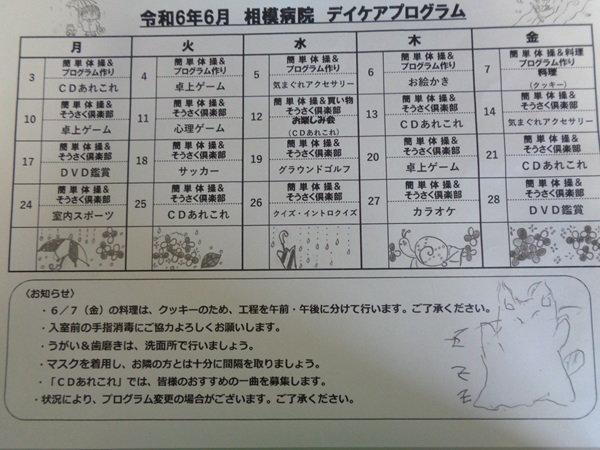 令和6年6月 相模病院 デイケアプログラム
月 火 水 木 金
3 簡単体操&プログラム作り CDあれこれ
4 簡単体操&プログラム作り 卓上ゲーム
5 簡単体操&プログラム作り 気まぐれアクセサリー
6 簡単体操&プログラム作り お絵かき
7 簡単体操&料理プログラム作り 料理 (クッキー)
10 簡単体操&そうさく倶楽部 卓上ゲーム
11 簡単体操&そうさく倶楽部 心理ゲーム
12 簡単体操&買い物 そうさく倶楽部 お楽しみ会 (CDあれこれ)
13 簡単体操&そうさく倶楽部 CDあれこれ
14 簡単体操&そうさく倶楽部 気まぐれアクセサリー
17 簡単体操&そうさく倶楽部 DVD鑑賞
18 簡単体操&そうさく倶楽部 サッカー
19 簡単体操&そうさく倶楽部 グラウンドゴルフ
20 簡単体操&そうさく倶楽部 卓上ゲーム
21 簡単体操&そうさく倶楽部 CDあれこれ
24 簡単体操&そうさく倶楽部 室内スポーツ
25 簡単体操&そうさく倶楽部 CDあれこれ
26 簡単体操&そうさく倶楽部 クイズ・イントロクイズ
27 簡単体操&そうさく倶楽部 カラオケ
28 簡単体操&そうさく倶楽部 DVD鑑賞
〈お知らせ〉
・6/7(金)の料理は、クッキーのため、工程を午前・午後に分けて行います。ご了承ください。
・入室前の手指消毒にご協力よろしくお願いします。
・うがい&歯磨きは、洗面所で行いましょう。
・マスクを着用し、お隣の方とは十分に間隔を取りましょう。
・「CDあれこれ」では、皆様のおすすめの一曲を募集します。
・状況により、プログラム変更の場合がございます。ご了承ください。